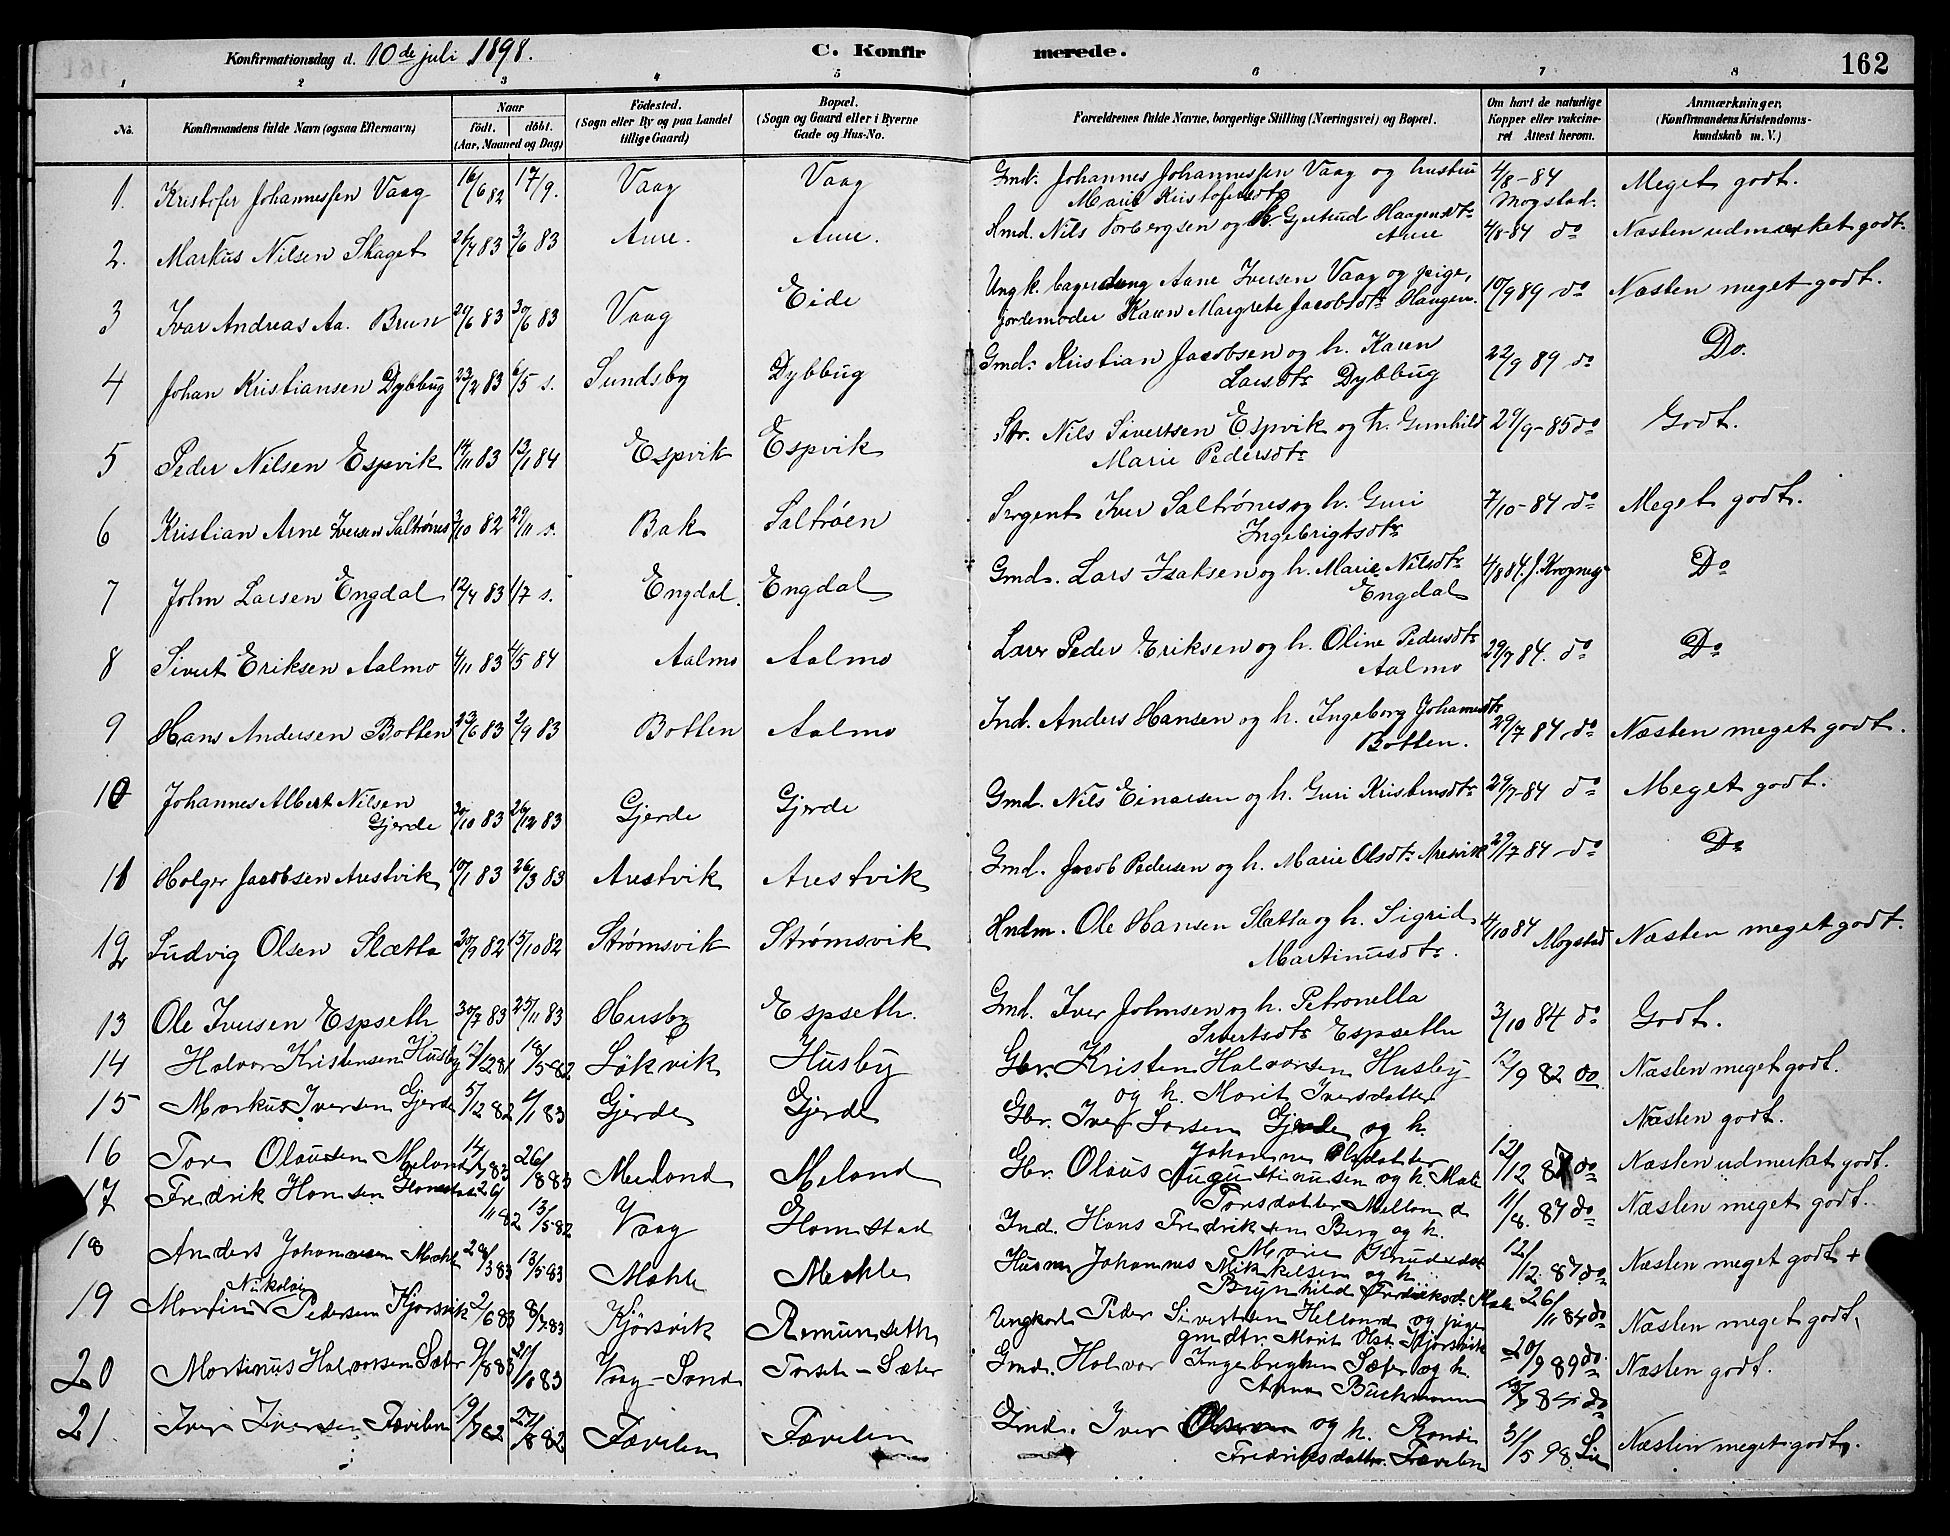 Konfirmationsdag d. 10de juli 1898. C. Konfirmerede. 162
1 2 3 4 5 6 7 8
No. Konfirmandens fulde Navn (ogsaa Efternavn) Naar födt. döbt. (Aar, Maaned og Dag) Födested. (Sogn eller By og paa Landet tillige Gaard) Bopæl. (Sogn og Gaard eller i Byerne Gade og Hus-No. Forældrenes fulde Navne, borgerlige Stilling (Næringsvei) og Bopæl. Om havt de naturlige Kopper eller vakcineret Attest herom. Anmærkninger. (Konfirmandens Kristendomskundskab m. V.)
1. Kristofer Johannessen Vaag 16/6 82 17/9. Vaag Vaag Gmd. Johannes Johannessen Vaag og hustru 4/8-84 Meget godt.
Marie Kristofersdtr Mogstad.
2. Markus Nilsen Skaget 26/4 83 3/6 83 Aure. Aure. Hmd. Nils Torbergsen og h. Gjertrud Haagensdtr 4/8-84 do Næsten udmærket godt.
Aure
3 Ivar Andreas Aa. Brun 29/6 83 30/6 83 Vaag Eide Ungk. Aane Iversen Vaag og pige, 10/9 89 do Næsten meget godt.
jordemoder Karen Margrete Jacobsdtr Haugen.
4 Johan Kristiansen Dybbug 23/2 83 6/5 s. Sundsby Dybbug Gmd. Kristian Jacobsen og h. Karen 22/9 89 do Do.
Larsdtr Dybbug
5 Peder Nilsen Espvik 14/11 83 13/1 84 Espvik Espvik Str. Nils Sivertsen Espvik og h. Gunhild 29/9-85 do Godt.
Marie Pedersdtr
6 Kristian Arne Iversen Saltrönes 3/10 82 29/11 s. Bak Saltröen Sergent Iver Saltrönes og h. Guri 7/10-84 do Meget godt.
Ingebrigtsdtr
7 John Larsen Engdal 12/4 83 1/7 s. Engdal. Engdal Gmd. Lars Isaksen og h. Marie Nilsdtr 4/8 84. Do
Engdal
8 Sivert Eriksen Aalmo 4/11 83 4/5 84 Aalmo Aalmo Peder Eriksen og h. Oline Pedersdtr 29/7 84. do Do
Aalmo
9 Hans Andersen Botten 23/6 83 2/9 83 Botten Aalmo Ind. Anders Hansen og h. Ingeborg Johannesdtr 29/7 84 do Næsten meget godt.
Botten.
10 Johannes Albert Nilsen
Gjerde 20/10 83 26/12 83 Gjerde Gjerde Gmd. Nils Einarsen og h. Guri Kristensdtr 29/7-84 do Meget godt.
11 Holger Jacobsen Aresvik 10/1 83 26/3 83 Arestvik Arestvik Gmd. Jacob Pedersen og h. Marie Olsdtr Aresvik 29/7 84 do Do
12 Ludvig Olsen Slætta 20/9 82 15/10 82 Strømsvik Strømsvik Hndm. Ole Hansen Slætta og h. Sigrid 4/10 84 Mogstad Næsten meget godt.
Martinusdtr.
13 Ole Iversen Espseth 30/7 83 25/11 83 Husby Espseth. Gmd. Iver Johnsen og h. Petronella 3/10 84 do Godt.
Sivertsdtr Espseth
14 Halvor Kristensen Husby 17/12 81 18/5 82 Lökvik Husby Gbr. Kristen Halvorsen Husby 12/9 82 do. Næsten meget godt.
og h. Marit Iversdatter
15 Markus Iversen Gjerde 5/12 82 4/1 83 Gjerde Gjerde Gbr. Iver Larsen Gjerde og h. Næsten godt.
16 Tore Olausen Meland 14/7 83 26/8 83 Meland Meland Gbr. Olaus Augustinusen og h. 12/12 87 do Næsten udmerket godt.
Torsdatter Melland
17 Fredrik Hansen 26/11 82 13/5 82 Vaag Glomstad Ind. Hans Fredriksen Berg og h. 11/8. 87 do Næsten meget godt.
18 Anders Johannesen Mæhle 28/3 83 13/5 83 Mæhle Mæhle Husm Johannes Mikkelsen og h. 12/12. 87 do Næsten meget godt +
19 Martin Nikolai Pedersen Kjørsvik 2/6 83 8/7 83 Kjörsvik Remmnseth Ungkarl Peder Sivertsen Helland og pige 26/11 84 do Næsten meget godt.
gmdtr Marit Olsd. Kjorsvik
20 Martinus Halvorsen Sæter 9/8 83 21/10 83 Vaag-Sand Torset-Sæter Gmd. Halvor Ingebrigtsen Sæter og h. 20/9 89 do Næsten godt.
Anna
21. Iver Iversen Færilen 19/7 82 27/8 82 Færilen Færilen Gmd. Iver og h. Randi 31/5 98 Næsten meget godt.
Fredriksdatter Færilen